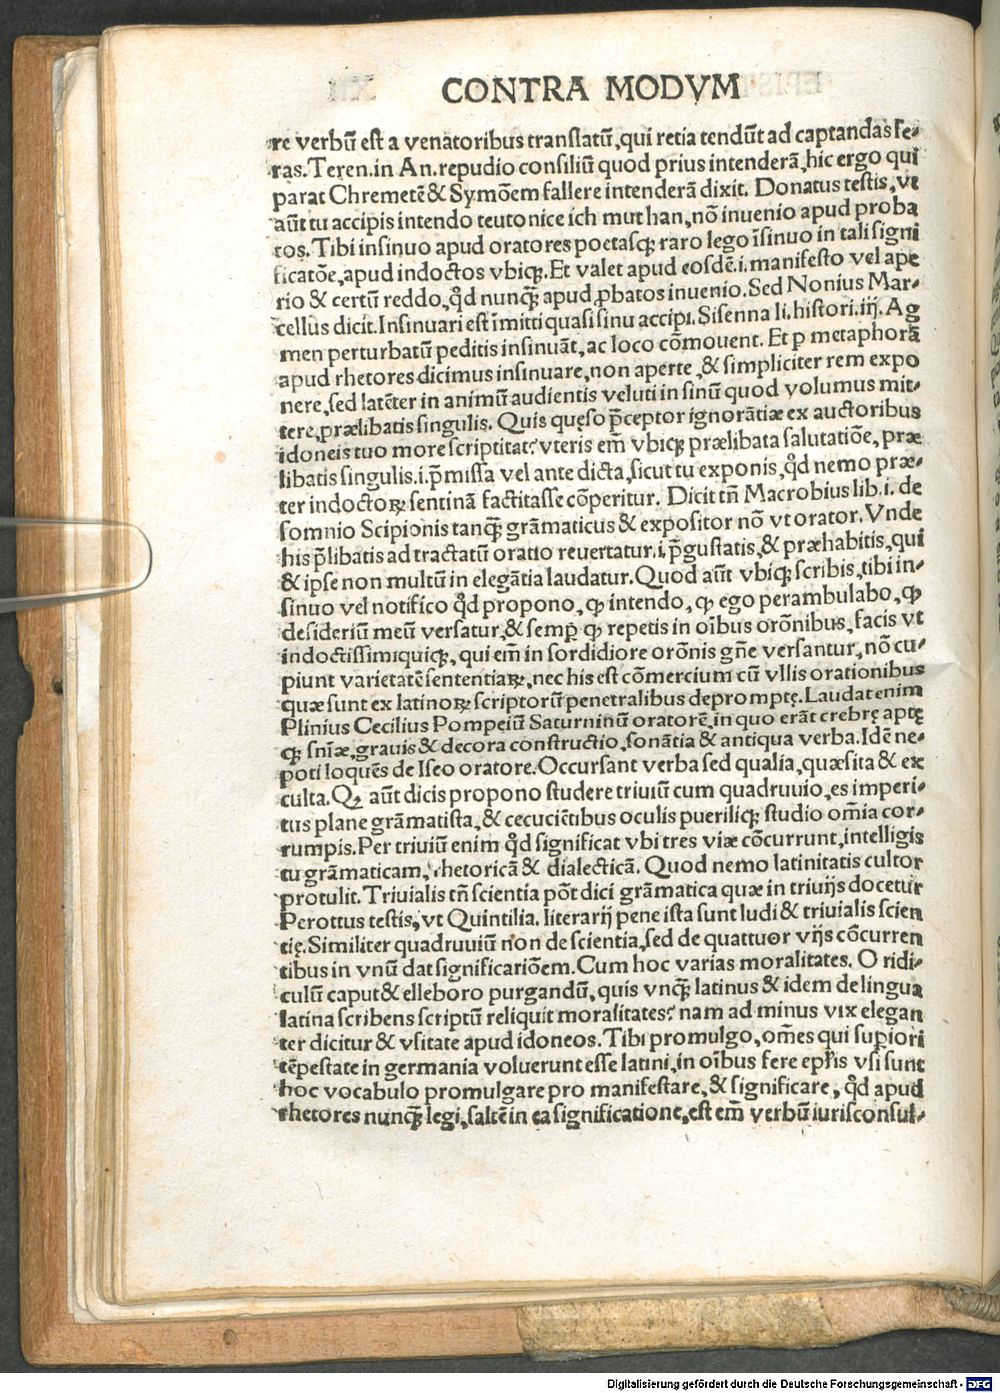 CONTRA MODVM
re verbū est a venatoribus translatū, qui retia tendūt ad captandas fe⸗
ras. Teren. in An. repudio consiliū quod prius intenderā, hic ergo qui
parat Chremetē & Symōem fallere intenderā dixit. Donatus testis, vt
aūt tu accipis intendo teutonice ich mut han, nō inuenio apud proba
tos. Tibi insinuo apud oratores poetasqꝫ raro lego īsinuo in tali signi
ficatōe, apud indoctos vbiqꝫ. Et valet apud eosdē .i. manifesto vel ape
rio & certū reddo, qd̄ nunqꝫ̄ apud ꝓbatos inuenio. Sed Nonius Mar⸗
cellus dicit. Insinuari est īmitti quasi sinu accipi. Sisenna li. histori. iij. Ag
men perturbatū peditis insinuāt, ac loco cōmouent. Et p metaphorā
apud rhetores dicimus insinuare, non aperte, & simpliciter rem expo
nere, sed latēter in animū audientis veluti in sinū quod volumus mit⸗
tere, prælibatis singulis. Quis quęso p̄ceptor ignorātiæ ex auctoribus
idoneis tuo more scriptitat? vteris em̄ vbiqꝫ prælibata salutatiōe, præ
libatis singulis .i. p̄missa vel ante dicta, sicut tu exponis, qd̄ nemo præ⸗
ter indoctoꝝ sentinā factitasse cōperitur. Dicit tn̄ Macrobius lib. i. de
somnio Scipionis tanqꝫ̄ grāmaticus & expositor nō vt orator. Vnde
his p̄libatis ad tractatū oratio reuertatur .i. p̄gustatis, & præhabitis, qui
& ipse non multū in elegātia laudatur. Quod aūt vbiqꝫ scribis, tibi in⸗
sinuo vel notifico qd̄ propono, ꝙ intendo, ꝙ ego perambulabo, ꝙ
desideriū meū versatur, & semp̄ ꝙ repetis in oībus orōnibus, facis vt
indoctissimiquiqꝫ, qui em̄ in sordidiore orōnis gn̄e versantur, nō cu⸗
piunt varietatē sententiaꝝ, nec his est cōmercium cū vllis orationibus
quæ sunt ex latinoꝝ scriptorū penetralibus depromptę. Laudat enim
Plinius Cecilius Pompeiū Saturninū oratorē, in quo erāt crebrę aptę
qꝫ sn̄iæ, grauis & decora constructio, sonātia & antiqua verba. Idē ne⸗
poti loquēs de Iseo oratore. Occursant verba sed qualia, quæsita & ex
culta. Qꝫ aūt dicis propono studere triuiū cum quadruuio, es imperi⸗
tus plane grāmatista, & cecuciētibus oculis puerilīqꝫ studio om̄ia cor⸗
rumpis. Per triuiū enim qd̄ significat vbi tres viæ cōcurrunt, intelligis
tu grāmaticam, rhetoricā & dialecticā. Quod nemo latinitatis cultor
protulit. Triuialis tn̄ scientia pōt dici grāmatica quæ in triuijs docetur
Perottus testis, vt Quintilia. literarij pene ista sunt ludi & triuialis scien
tię. Similiter quadruuiū non de scientia, sed de quattuor vijs cōcurren
tibus in vnū dat significariōem. Cum hoc varias moralitates. O ridi⸗
culū caput & elleboro purgandū, quis vnqꝫ̄ latinus & idem de lingua
latina scribens scriptū reliquit moralitates? nam ad minus vix elegan
ter dicitur & vsitate apud idoneos. Tibi promulgo, om̄es qui sup̄iori
tēpestate in germania voluerunt esse latini, in oībus fere ep̄lis vsi sunt
hoc vocabulo promulgare pro manifestare, & significare, qd̄ apud
rhetores nunqꝫ̄ legi, saltē in ea significatione, est em̄ verbū iurisconsul⸗
Digitalisierung gefördert durch die Deutsche Forschungsgemeinschaft - DFG